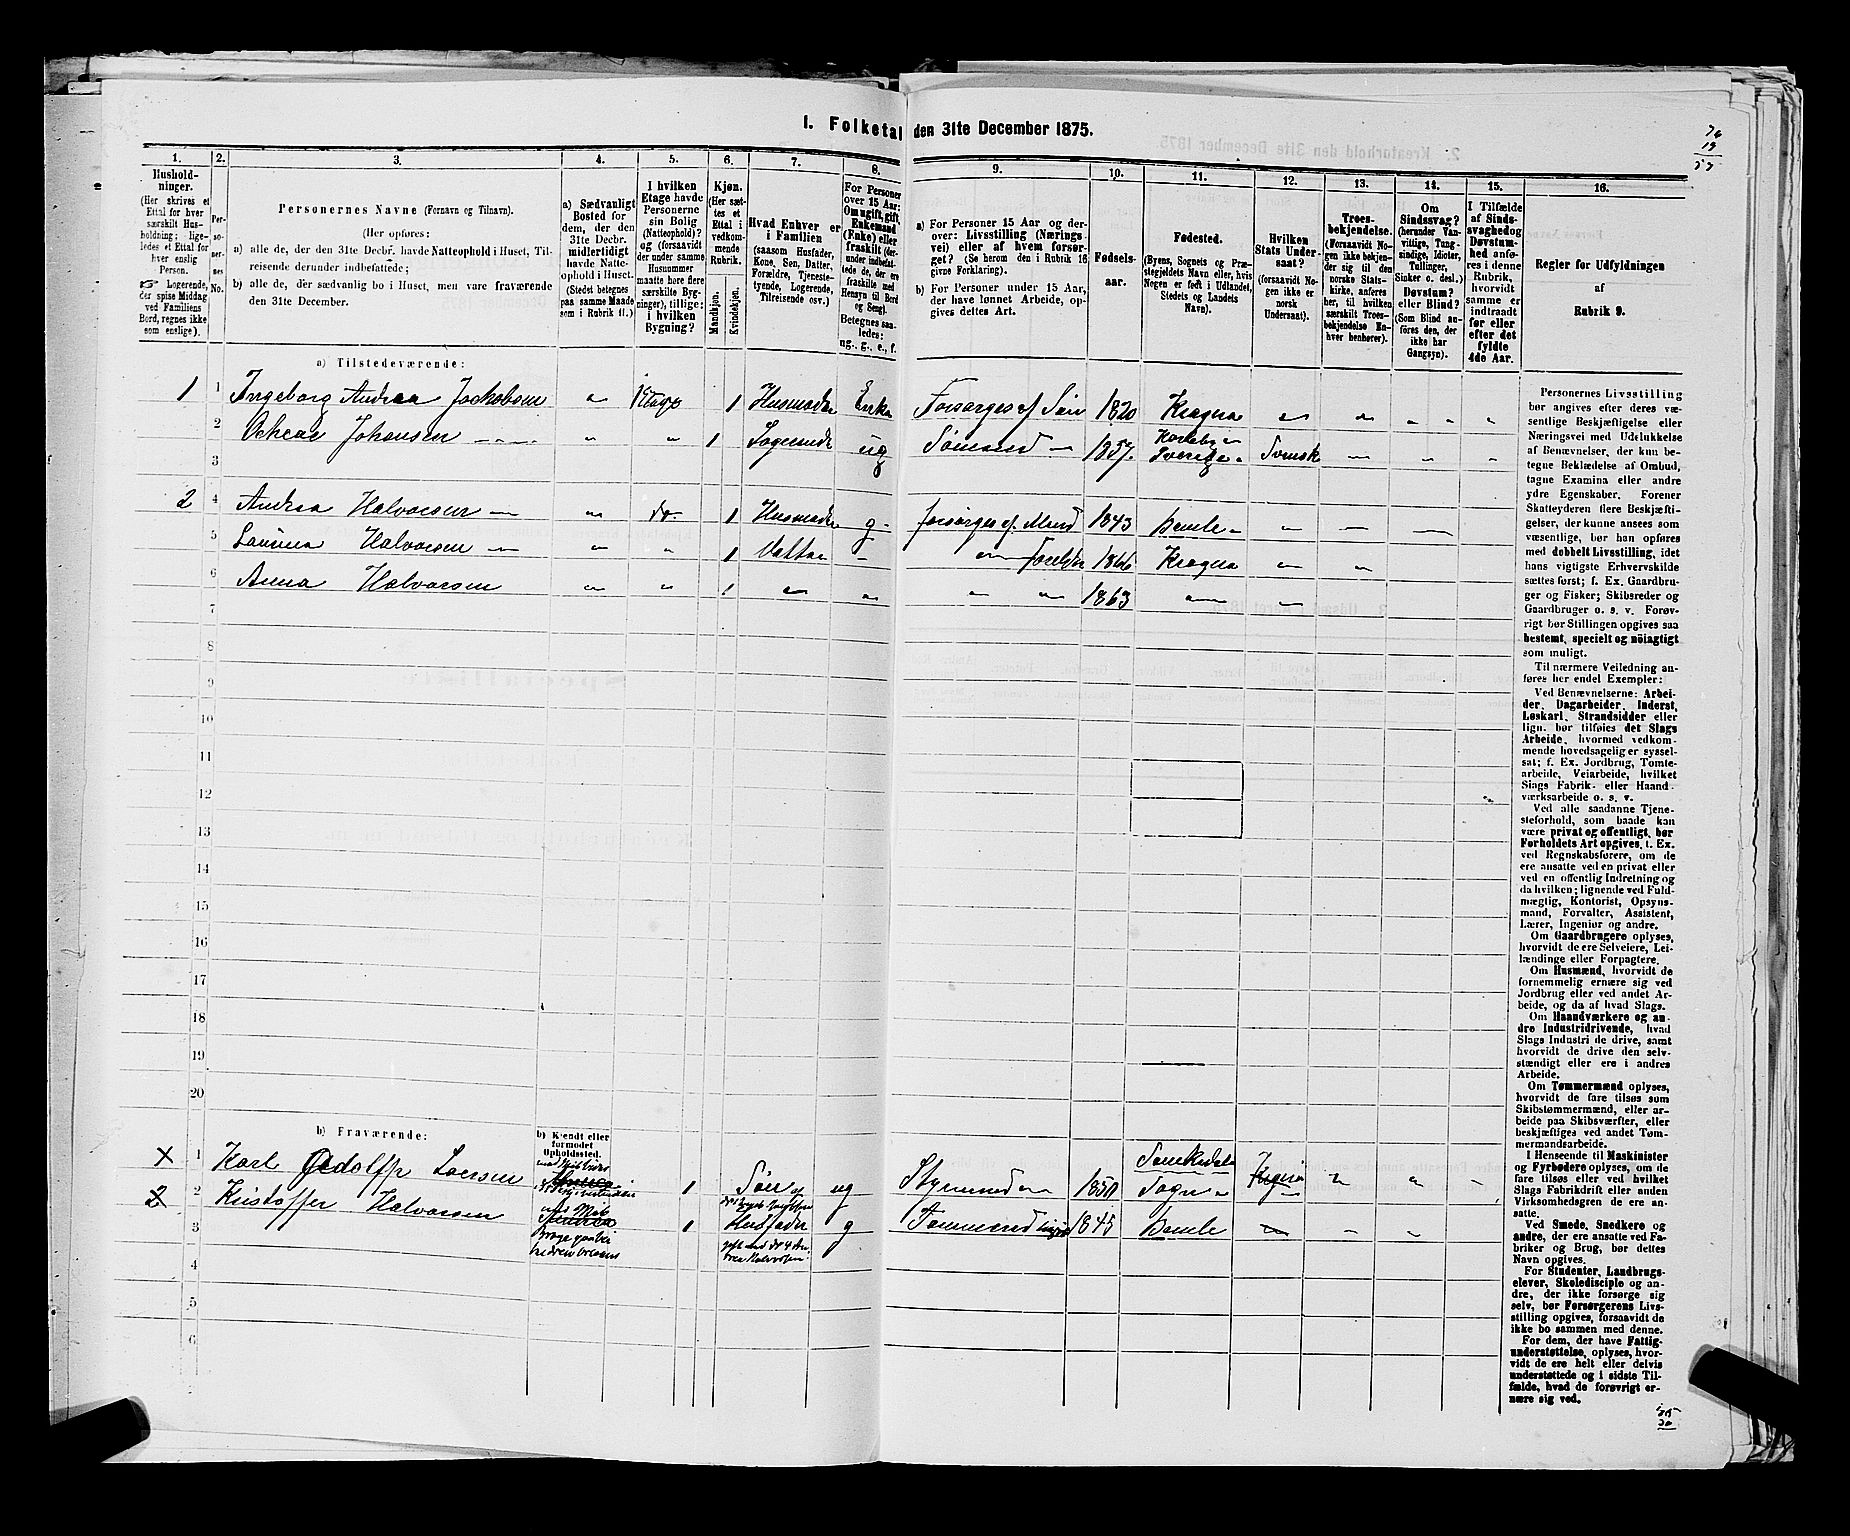 I. Folketal den 31te December 1875.
1. 2. 3. 4. 5. 6. 7. 8. 9. 10. 11. 12. 13. 14. 15. 16.
Husholdninger.
(Her skrives et Ettal for hver særskilt Husholdning; ligeledes et Ettal for hver enslig Person.
Logerende, der spise Middag ved Familiens Bord, regnes ikke som enslige).
Personernes No.
Personernes Navne (Fornavn og Tilnavn).
(Her opføres:
a) alle de, der den 31te Decbr. havde Natteophold i Huset, Tilreisende derunder indbefattede;
b) alle de, der sædvanlig bo i Huset, men vare fraværende den 31te December.
a) Sædvanligt Bosted for dem, der den 31te Decbr. midlertidigt havde Natteophold i Huset. (Stedet betegnes paa samme Maade som i Rubrik 11.)
I hvilken Etage havde Personerne sin Bolig (Natteophold)? og (forsaavidt der under samme Husnummer maatte høre flere særskilte Bygninger), tillige: i hvilken Bygning?
Kjøn.
(Her sættes et Ettal i vedkommende Rubrik.
Mandkjøn. Kvindekjøn.
Hvad Enhver er i Familien
(saasom Husfader, Kone, Søn, Datter, Forældre, Tjenestetyende, Logerende, Tilreisende osv.)
For Personer over 15 Aar: Om ugift, gift, Enkemand (Enke) eller fraskilt
Betegnes saaledes: ug., g., e., f.
a) For Personer 15 Aar og derover: Livsstilling (Næringsvei) eller af hvem forsørget? (Se herom den i Rubrik 16 givne Forklaring).
b) For Personer under 15 Aar, der have lønnet Arbeide, opgives dettes Art.
Fødselsaar.
Fødested.
(Byens, Sognets og Præstegjeldets Navn eller, hvis Nogen er født i Udlandet, Stedets og Landets Navn).
Hvilken Stats Undersaat?
(forsaavidt Nogen ikke er norsk Undersaat).
Troesbekjendelse.
(Forsaavidt Nogen ikke bekjender sig til den norske Statskirke, anføres her, til hvilken særskilt Troesbekjendelse Enhver henhører).
Om Sindssvag? (herunder Vanvittige, Tungsindige, Idioter, Tullinger, Sinker o. desl.) Døvstum? eller Blind? (Som Blind anføres den, der ikke har Gangsyn).
I Tilfælde af Sindssvaghed og Døvstumhed anføres i denne Rubrik, hvorvidt samme er indtraadt før eller efter det fyldte 4de Aar.
Regler for Udfyldningen af Rubrik 9.
a) Tilstedeværende:
1 1 Ingeborg Andrea Jackobsen " 1 Etage 1 Husmoder Enke Forsørges af Søn 1820 Kragerø
2 Johansen " " 1 Logerende ug Sømand 1857 Sverige Svensk
3
2 4 Andrea Halvorsen " do 1 Husmoder g forsørges af Mand 1843 Bamle
5 Halvorsen " " 1 Datter 1866 Kragerø
6 Anna Halvorsen " " 1 1863
7
8
9
10
11
12
13
14
15
16
17
18
19
20
b) Fraværende:
b) Kjendt eller formodet Opholdssted.
X 1 Karl Adolff Larsen 1 Søn af ug Styrmand 1850 Sannikedals Sogn
2 2 Kristoffer Halvorsen 1 Husfader g Tømmermand 1845 Bamle
3
4
5
6
Personernes Livsstilling bør angives efter deres væsentlige Beskjæftigelse eller Næringsvei med Udelukkelse af Benævnelser, der kun betegne Beklædelse af Ombud, tagne Examina eller andre ydre Egenskaber. Forener Skatteyderen flere Beskjæftigelser, der kunne ansees som væsentlige, bør han opføres med dobbelt Livsstilling, idet hans vigtigste Erhvervskilde sættes først; f. Ex. Gaardbruger og Fisker; Skibsreder og Gaardbruger o. s. v. Forøvrigt bør Stillingen opgives saa bestemt, specielt og nöiagtigt som muligt.
Til nærmere Veiledning anføres her endel Exempler:
Ved Benævnelserne: Arbeider, Dagarbeider, Inderst, Løskarl, Strandsidder eller lign. bør tilføies det Slags Arbeide, hvormed vedkommende hovedsagelig er sysselsat; f. Ex. Jordbrug, Tomtearbeide, Veiarbeide, hvilket Slags Fabrik- eller Haandværksarbeide o. s. v.
Ved alle saadanne Tjenesteforhold, som baade kan være privat og offentligt, bør Forholdets Art opgives, f. Ex. ved Regnskabsførere, om de ere ansatte ved en privat eller ved en offentlig Indretning og da hvilken; lignende ved Fuldmægtig, Kontorist, Opsynsmand, Forvalter, Assistent, Lærer, Ingeniør og andre.
Om Gaardbrugere oplyses, hvorvidt de ere Selveiere, Leilændinge eller Forpagtere.
Om Husmænd, hvorvidt de fornemmelig ernære sig ved Jordbrug eller ved andet Arbeide, og da af hvad Slags.
Om Haandværkere og andre Industridrivende, hvad Slags Industri de drive, samt hvorvidt de drive den selvstændigt eller ere i andres Arbeide.
Om Tømmermænd oplyses, hvorvidt de fare tilsøs som Skibstømmermænd, eller arbeide paa Skibsværfter, eller beskjæftiges ved andet Tømmermandsarbeide.
I Henseende til Maskinister og Fyrbødere oplyses, om de fare tilsøs eller ved hvilket Slags Fabrikdrift eller anden Virksomhed de ere ansatte.
Ved Smede, Snedkere og andre, der ere ansatte ved Fabriker og Brug, bør dettes Navn opgives.
For Studenter, Landbrugselever, Skoledisciple og andre, der ikke forsørge sig selv, bør Forsørgerens Livsstilling opgives, forsaavidt de ikke bo sammen med denne.
For dem, der have Fattigunderstøttelse, oplyses, hvorvidt de ere helt eller delvis understøttede og i sidste Tilfælde, hvad de forøvrigt ernære sig ved.